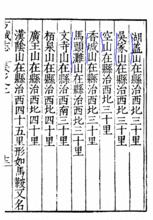 湖盖山在縣治西北三十里
吳家山在縣治西北三十里
空山在縣治西北三十里
香城山在縣治西北三十里
馬頭灘山在縣治西北三十里
文寺山在縣治西南三十里
栢泉山在縣治西北四十里
廣王山在縣治西北四十里
漢陰山在縣治西四十五里形如馬鞍又名